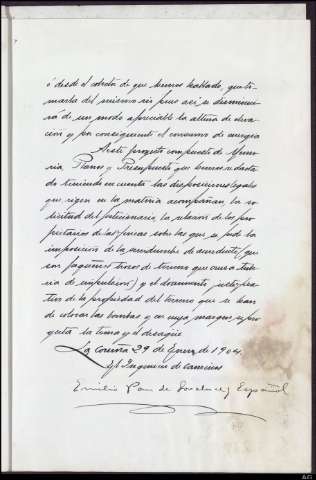 ó desde el arbeta de que hemos hablado, que to-
marla del mismo río pues así se disminui-
rá de un modo apreciable la altura de eleva-
cion y por consiguiente el consumo de energia
A este proyecto compuesto de Memo-
ria, Planos y Presupuesto que hemos redacta-
do teniendo en cuenta las disposiciones legales
que rigen en la materia acompañan la so-
licitud del peticionario la relacion de los pro-
pietarios de las fincas sobre las que se pide la
imposicion de la servidumbre de acueducto (que
son pequeños trozos de terreno que cruza tube-
ria de impulsion) y el documento justifica-
tivo de la propiedad del terreno que se han
de colocar las bombas y en cuya margen se pro-
yecta la toma y el desagüe
La Coruña 29 de Enero de 1904.
El Ingeniero de caminos
Emilio Pan de Español